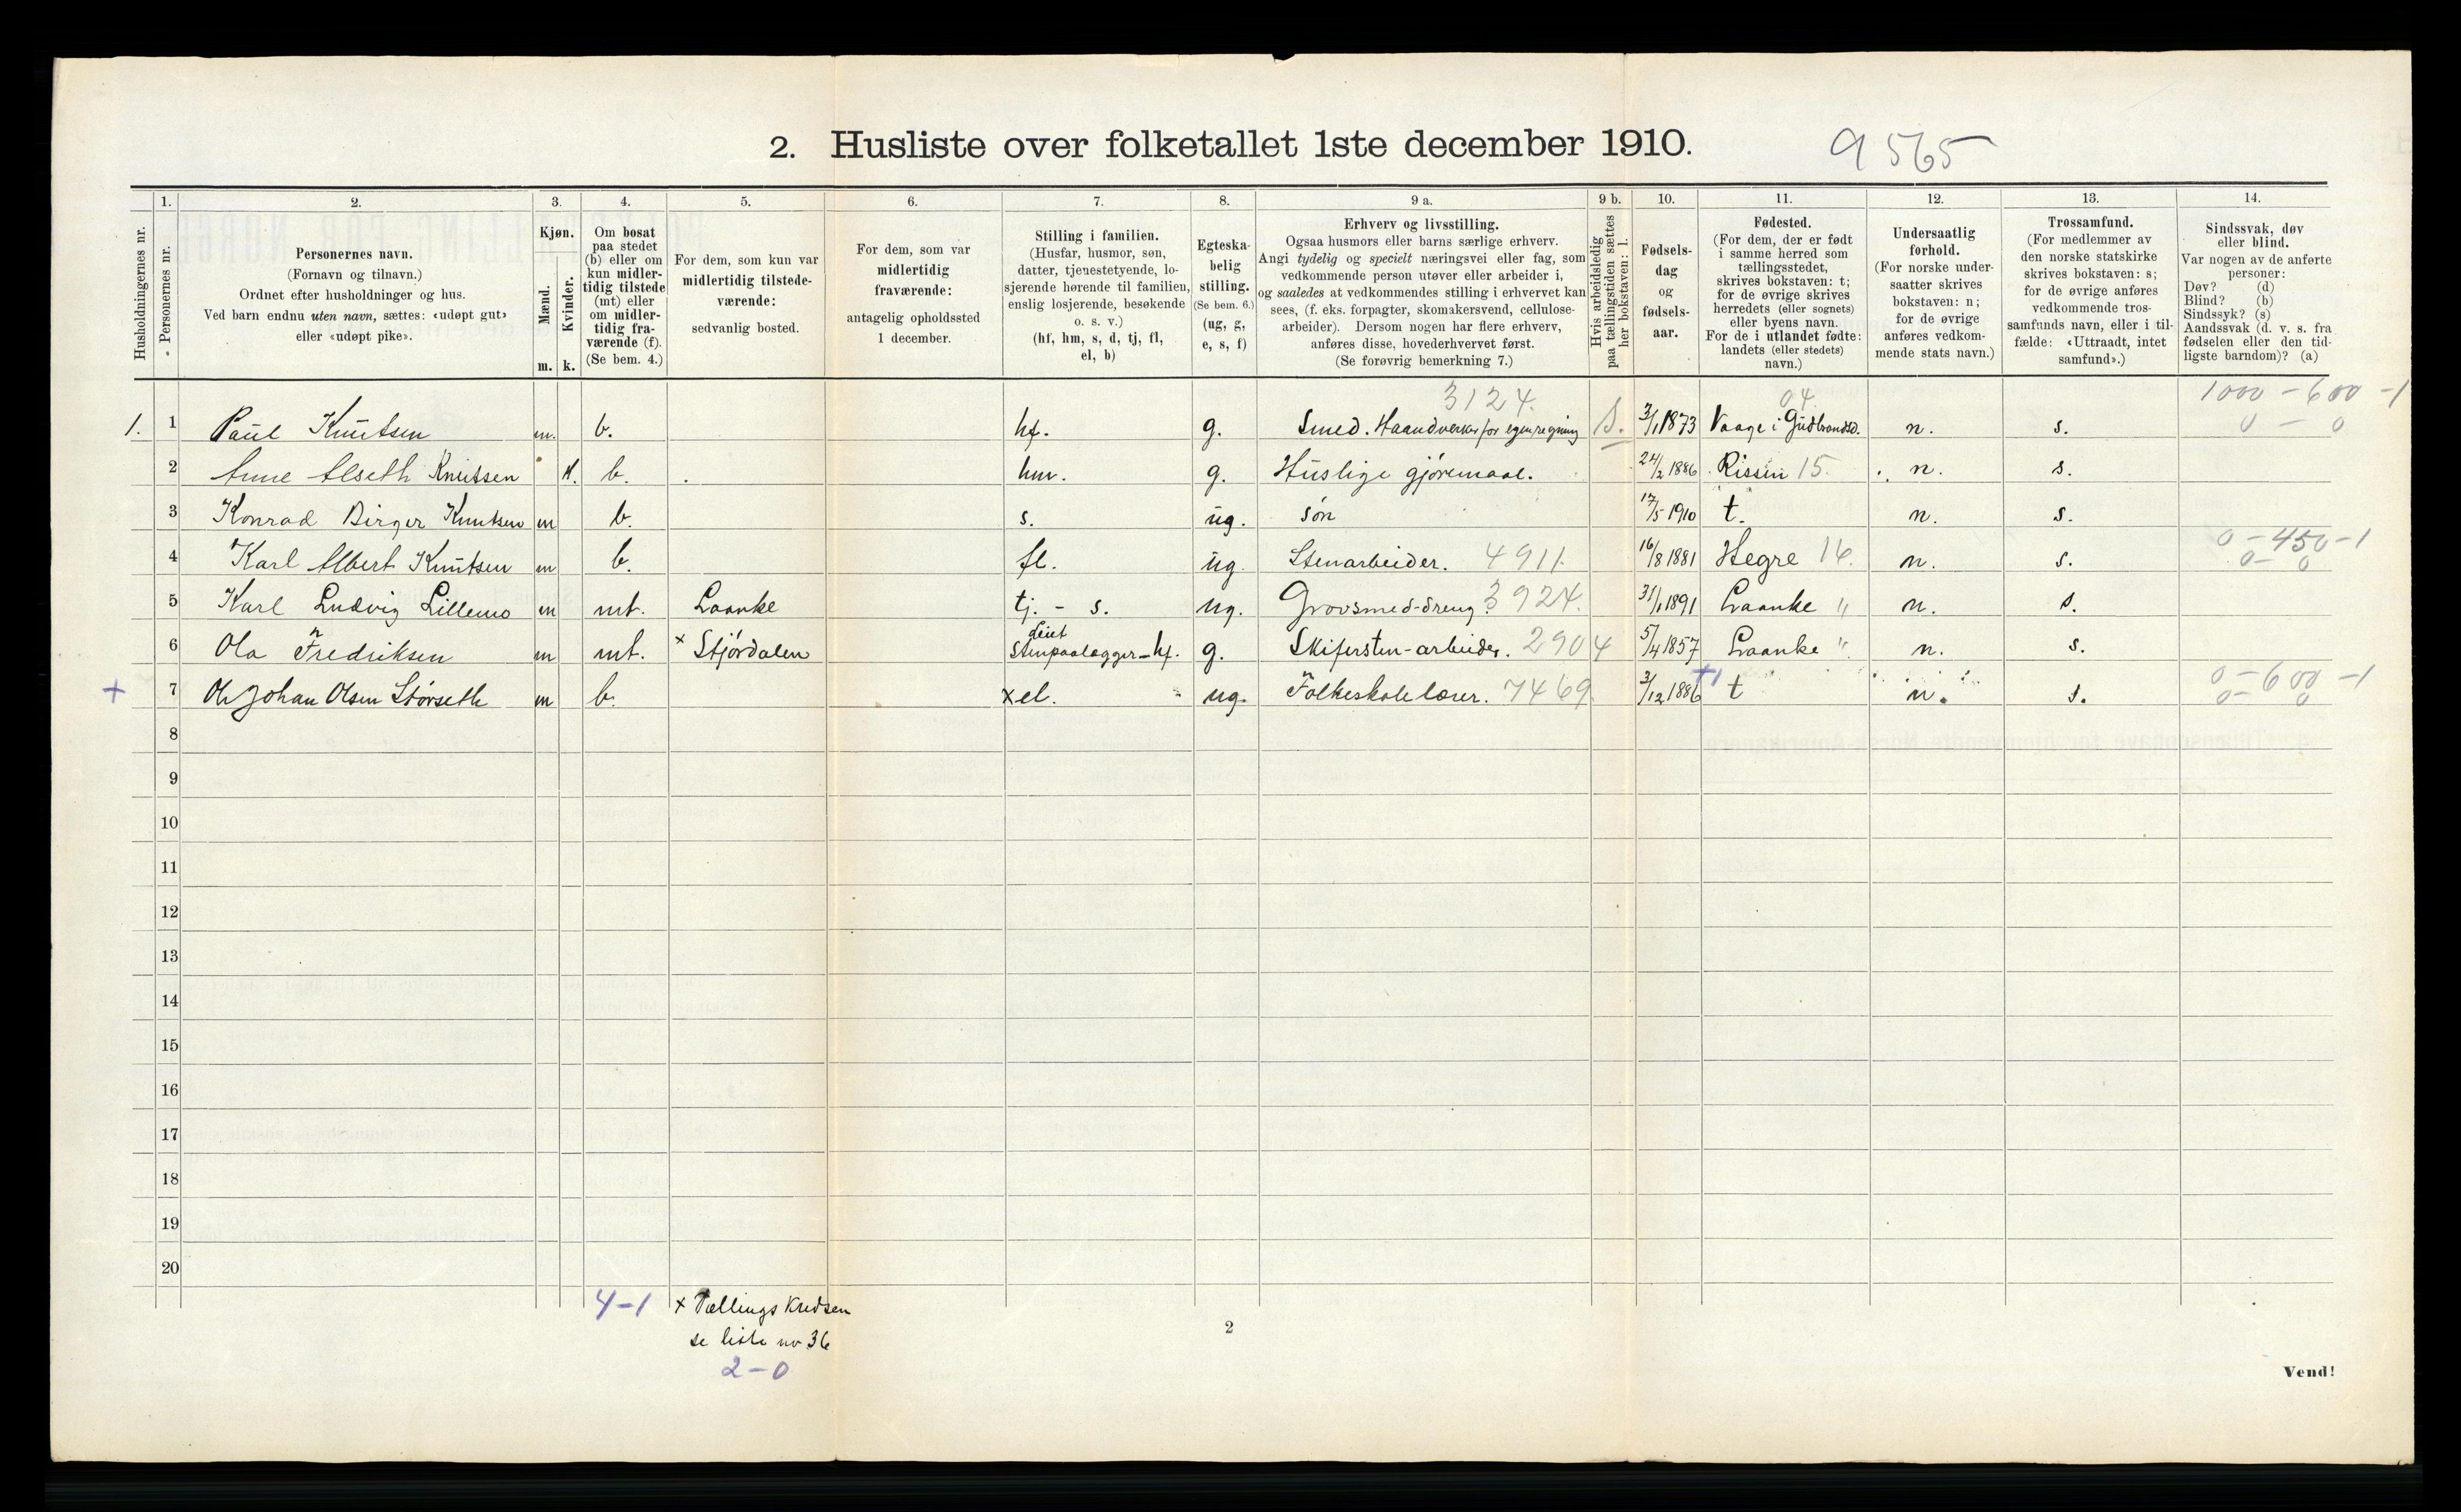 2. Husliste over folketallet 1ste december 1910. 9565
1. 2. 3. 4. 5. 6. 7. 8. 9 a. 9 b. 10. 11. 12. 13. 14.
Husholdningernes nr.
Personernes nr.
Personernes navn.
(Fornavn og tilnavn.)
Ordnet efter husholdninger og hus.
Ved barn endnu uten navn, sættes: «udøpt gut»
eller «udøpt pike».
Kjøn.
Mænd.
Kvinder.
m. k.
Om bosat
paa stedet
(b) eller om
kun midler-
tidig tilstede
(mt) eller
om midler-
tidig fra-
værende (f).
(Se bem. 4.)
For dem, som kun var
midlertidig tilstede-
værende:
sedvanlig bosted.
For dem, som var
midlertidig
fraværende:
antagelig opholdssted
1 december.
Stilling i familien.
(Husfar, husmor, søn,
datter, tjenestetyende, lo-
sjerende hørende til familien,
enslig losjerende, besøkende
o. s. v.)
(hf, hm, s, d, tj, fl,
el, b)
Egteska-
belig
stilling.
(Se bem. 6.)
(ug, g,
e, s, f)
Erhverv og livsstilling.
Ogsaa husmors eller barns særlige erhverv.
Angi tydelig og specielt næringsvei eller fag, som
vedkommende person utøver eller arbeider i,
og saaledes at vedkommendes stilling i erhvervet kan
sees, (f. eks. forpagter, skomakersvend, cellulose-
arbeider). Dersom nogen har flere erhverv,
anføres disse, hovederhvervet først.
(Se forøvrig bemerkning 7.)
Hvis arbeidsledig
paa tællingstiden sættes
her bokstaven: l.
Fødsels-
dag
og
fødsels-
aar.
Fødested.
(For dem, der er født
i samme herred som
tællingsstedet,
skrives bokstaven: t;
for de øvrige skrives
herredets (eller sognets)
eller byens navn.
For de i utlandet fødte:
landets (eller stedets)
navn.)
Undersaatlig
forhold.
(For norske under-
saatter skrives
bokstaven: n;
for de øvrige
anføres vedkom-
mende stats navn.)
Trossamfund.
(For medlemmer av
den norske statskirke
skrives bokstaven: s;
for de øvrige anføres
vedkommende tros-
samfunds navn, eller i til-
fælde: «Uttraadt, intet
samfund».)
Sindssvak, døv
eller blind.
Var nogen av de anførte
personer:
Døv? (d)
Blind? (b)
Sindssyk? (s)
Aandssvak (d. v. s. fra
fødselen eller den tid-
ligste barndom)? (a)
3124. 04. 1000 - 600 - 1
1. 1 Paul Knutsen m. b. hf. g. Smed. Haandverker for egen regning S. 3/1 1873 Vaage i Gudbrandsd. n. s. 0 - 0
2 Anne Alseth Knutsen k. b. hm. g. Huslige gjøremaal. 24/2 1886 Rissen 15. n. s.
3 Konrad Birger Knutsen m b. s. ug. søn 17/5 1910 t. n. s.
0 - 450 - 1
4 Karl Albert Knutsen m b. fl. ug. Stenarbeider. 4911. 16/8 1881 Hegre 16. n. s. 0 - 0
5 Karl Ludvig Lillemo m mt. Laanke tj. - s. ug. Grovsmed-dreng. 3924. 31/1 1891 Laanke " n. s.
leiet
6 Ola Fredriksen m mt. x Stjørdalen Stenpaalegger - hf. g. Skifersten-arbeider. 2904 5/4 1857 Laanke " n. s.
+ 0 - 600 - 1
+ 7 Ole Johan Olsen Størseth m b. x el. ug. Folkeskolelærer. 7469 3/12 1886 t n. s. 0 - 0
8
9
10
11
12
13
14
15
16
17
18
19
20
4-1 x Tællings Kredsen
se liste no 36
2-0
2
Vend!